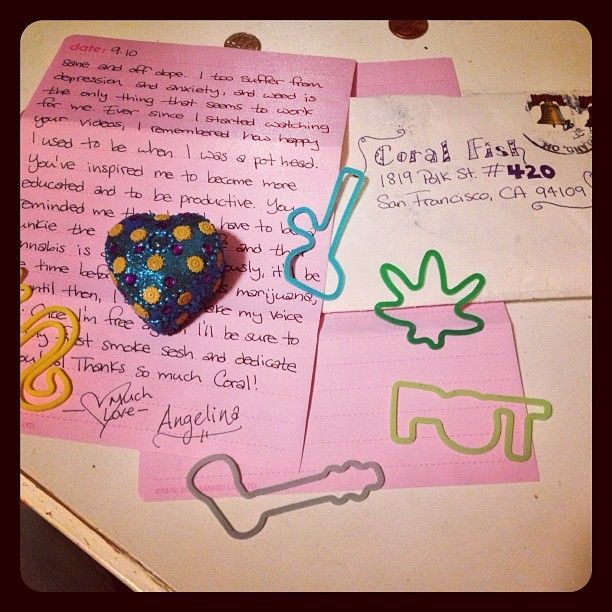 date: 9.10
sane and off dope. I too suffer from
depression and anxiety, and weed is
the only thing that seems to work
for me. Ever since I started watching
your videos, I remembered how happy
I used to be when I was a pot head.
You've inspired me to become more
educated and to be productive. You
me have to be
the
is and
time be
until then, I marijuana,
Once I'm free my voice
I'll be sure to
smoke sesh and dedicate
Thanks so much Coral!
Much
Love-
Angelina
Coral Fish
1819 Polk St. #420
San Francisco, CA 94109